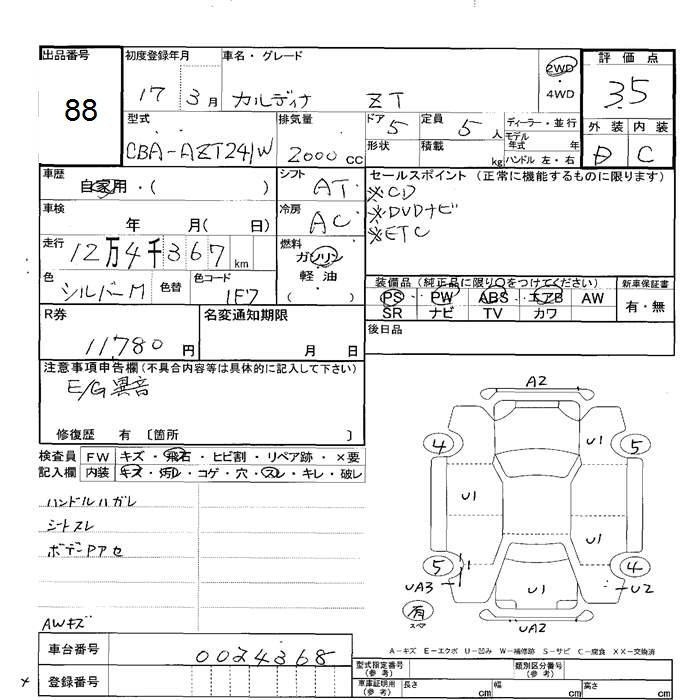 出品番号
88
初度登録年月
17 3月
車名・グレード
カルディナ ZT
2WD
・4WD
評価点
3.5
型式
CBA-AZT241W
排気量
2000 cc
ドア
5
形状
定員
5 人
積載
kg
ディーラー・並行
モデル
年式 年
ハンドル 左・右
外装 内装
D C
車歴
自家用・( )
シフト
AT
セールスポイント (正常に機能するものに限ります)
※CD
※DVDナビ
※ETC
車検
年 月( 日)
冷房
AC
走行
12万4千367km
燃料
ガソリン
軽油
( )
色
シルバーM
色替
色コード
1F7
装備品(純正品に限り○をつけてください)
PS PW ABS エアB AW
SR ナビ TV カワ
新車保証書
有・無
R券
11,780 円
名変通知期限
月 日
後日品
注意事項申告欄(不具合内容等は具体的に記入して下さい)
E/G異音
修復歴 有 〔箇所 〕
検査員
記入欄
FW キズ・飛石・ヒビ割・リペア跡・×要
内装 キズ・汚れ・コゲ・穴・スレ・キレ・破レ
ハンドルハガレ
シートスレ
AWキズ
A2
4
U1
5
U1
U1
5
UA3
U1
4
U2
有
スペア
UA2
A-キズ E-エクボ U-凹み W-補修跡 S-サビ C-腐食 XX-交換済
車台番号
0024368
登録番号
型式指定番号
(参考)
類別区分番号
(参考)
車庫証明用
(参考)
長さ cm
幅 cm
高さ cm